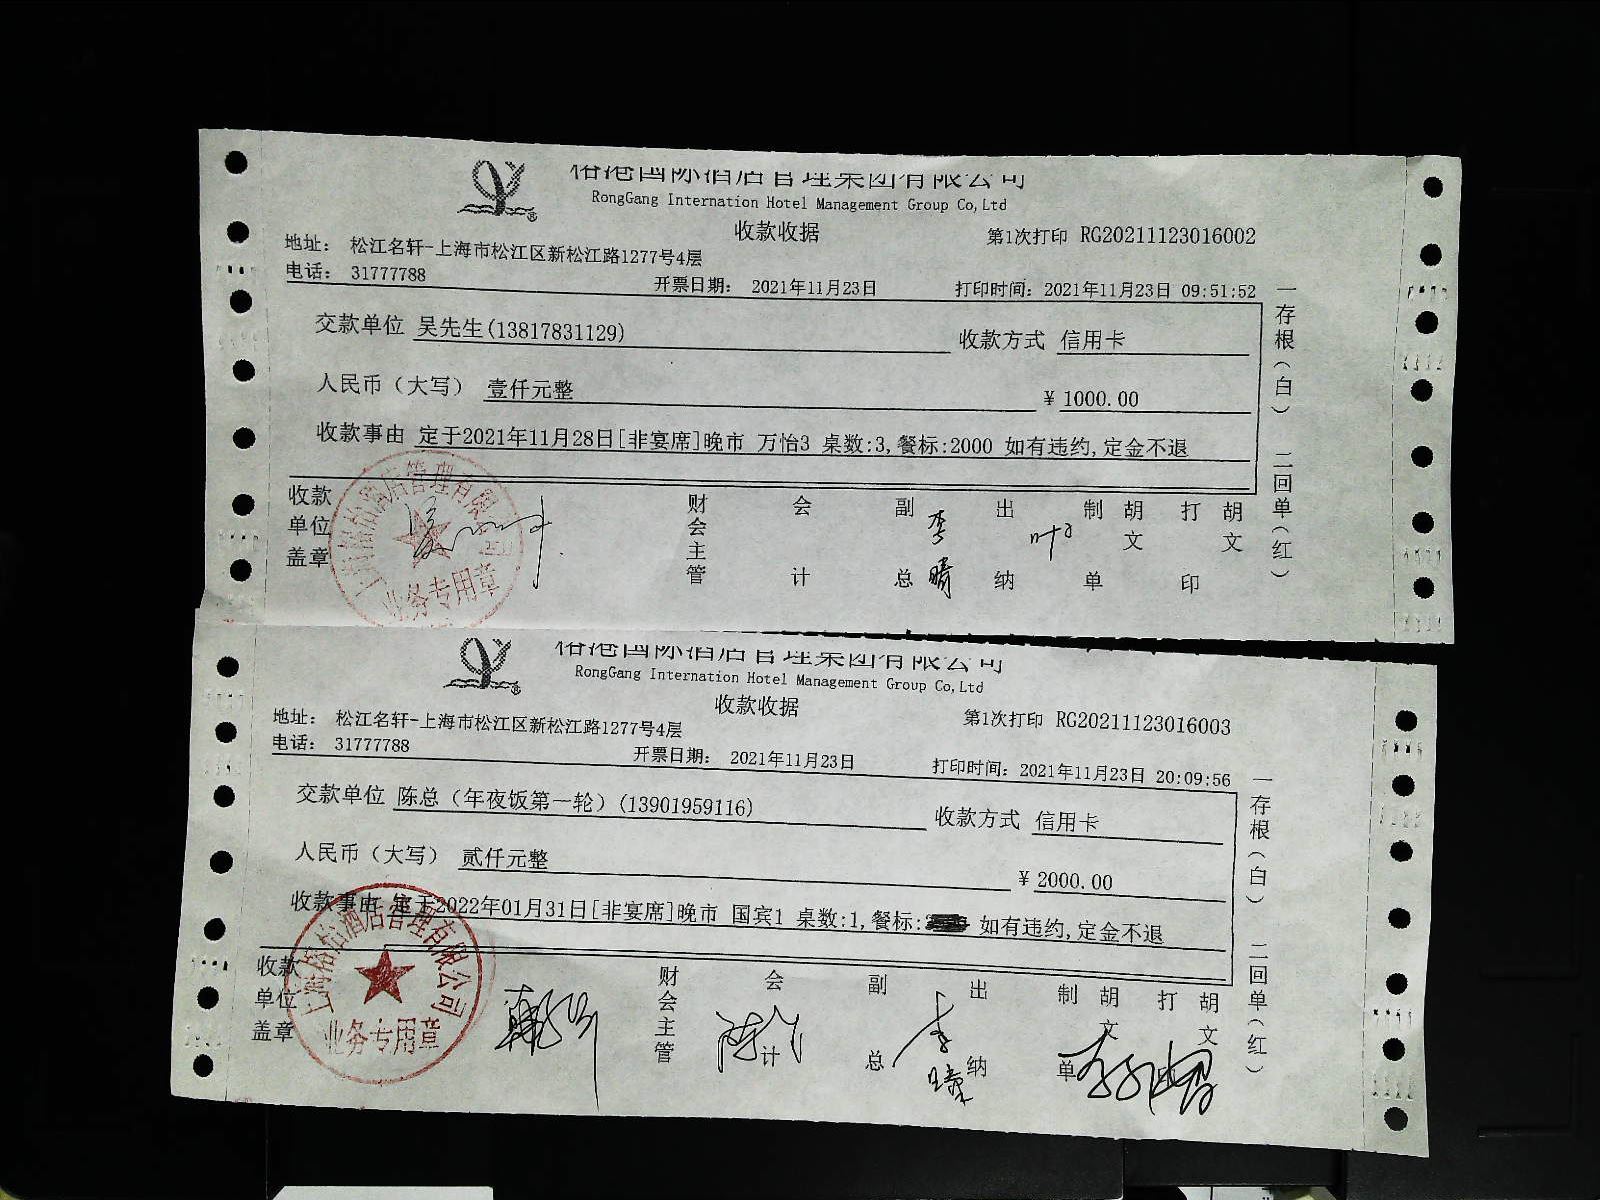 榕港国际酒店管理集团有限公司
RongGang Internation Hotel Management Group Co,Ltd
收款收据
第1次打印 RG20211123016002
地址： 松江名轩-上海市松江区新松江路1277号4层
电话： 31777788
开票日期： 2021年11月23日
打印时间：2021年11月23日 09:51:52
交款单位 吴先生(13817831129)
收款方式 信用卡
人民币（大写） 壹仟元整
¥ 1000.00
收款事由 定于2021年11月28日[非宴席]晚市 万怡3 桌数:3,餐标:2000 如有违约,定金不退
一存根（白） 二回单（红）
收款单位盖章
财会主管
会计
副总 李晴
出纳 叶
制单 胡文
打印 胡文
酒店管理有限
业务专用章
榕港国际酒店管理集团有限公司
RongGang Internation Hotel Management Group Co,Ltd
收款收据
第1次打印 RG20211123016003
地址： 松江名轩-上海市松江区新松江路1277号4层
电话： 31777788
开票日期： 2021年11月23日
打印时间：2021年11月23日 20:09:56
交款单位 陈总（年夜饭第一轮）(13901959116)
收款方式 信用卡
人民币（大写） 贰仟元整
¥ 2000.00
收款事由 定于2022年01月31日[非宴席]晚市 国宾1 桌数:1,餐标: 如有违约,定金不退
一存根（白） 二回单（红）
收款单位盖章
财会主管
会计
副总 李
出纳
制单 胡文
打 胡文
酒店管理有限公司
业务专用章